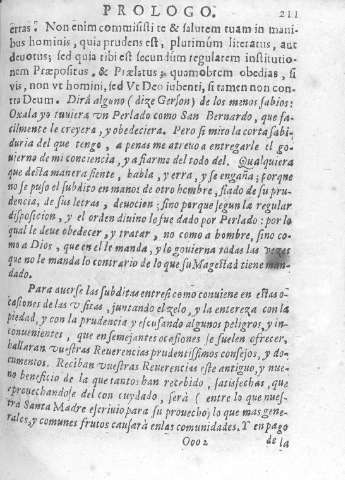 PROLOGO. 211
ertas. Non enim commisisti te & salutem tuam in mani
bus hominis, quia prudens est, plurimùm literatus, aut
devotus; sed quia tibi est secundùm regularem institutio
nem Præpositus, & Prælatus; quamobrem obedias, si
vis, non vt homini, sed Vt Deo iubenti, si tamen non con
tra Deum. Dirà alguno (dize Gerson) de los menos sabios:
Oxala yo tuviera vn Perlado como San Bernardo, que fa-
cilmente le creyera, y obedeciera. Pero si miro la corta sabi-
duria del que tengo, a penas me atrevo a entregarle el go-
uierno de mi conciencia, y a fiarme del todo del. Qualquiera
que desta manera siente, habla, y erra, y se engaña; porque
no se puso el subdito en manos de otro hombre, fiado de su pru-
dencia, de sus letras, devocion; sino porque segun la regular
disposicion, y el orden diuino le fue dado por Perlado: por lo
qual le deue obedecer, y tratar, no como a hombre, sino co-
mo a Dios, que en el le manda, y lo govierna todas las vezes
que no le manda lo contrario de lo que su Magestad tiene man-
dado.
Para auerse las subditas entre si como conviene en estas o-
casiones de las visitas, juntando el zelo, y la entereza con la
piedad, y con la prudencia y escusando algunos peligros, y in-
convenientes, que en semejantes ocasiones se suelen ofrecer,
hallaran vuestras Reverencias prudentissimos consejos, y do-
cumentos. Reciban vuestras Reverencias este antiguo, y nue-
no beneficio de la que tantos han recebido, satisfechas, que
aprouechandose del con cuydado, serà (entre lo que nues-
tra Santa Madre escriuio para su provecho) lo que mas gene-
rales, y comunes frutos causarà en las comunidades. Y en pago
Ooo 2 de la